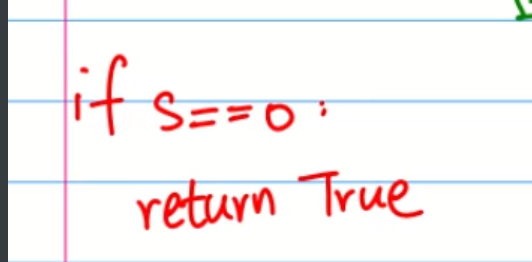 if s==0:
return True